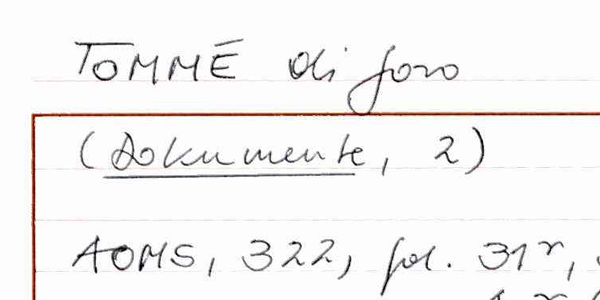 TOMMÉ di foro
(Dokumente, 2)
AOMS, 322, fol. 31r,